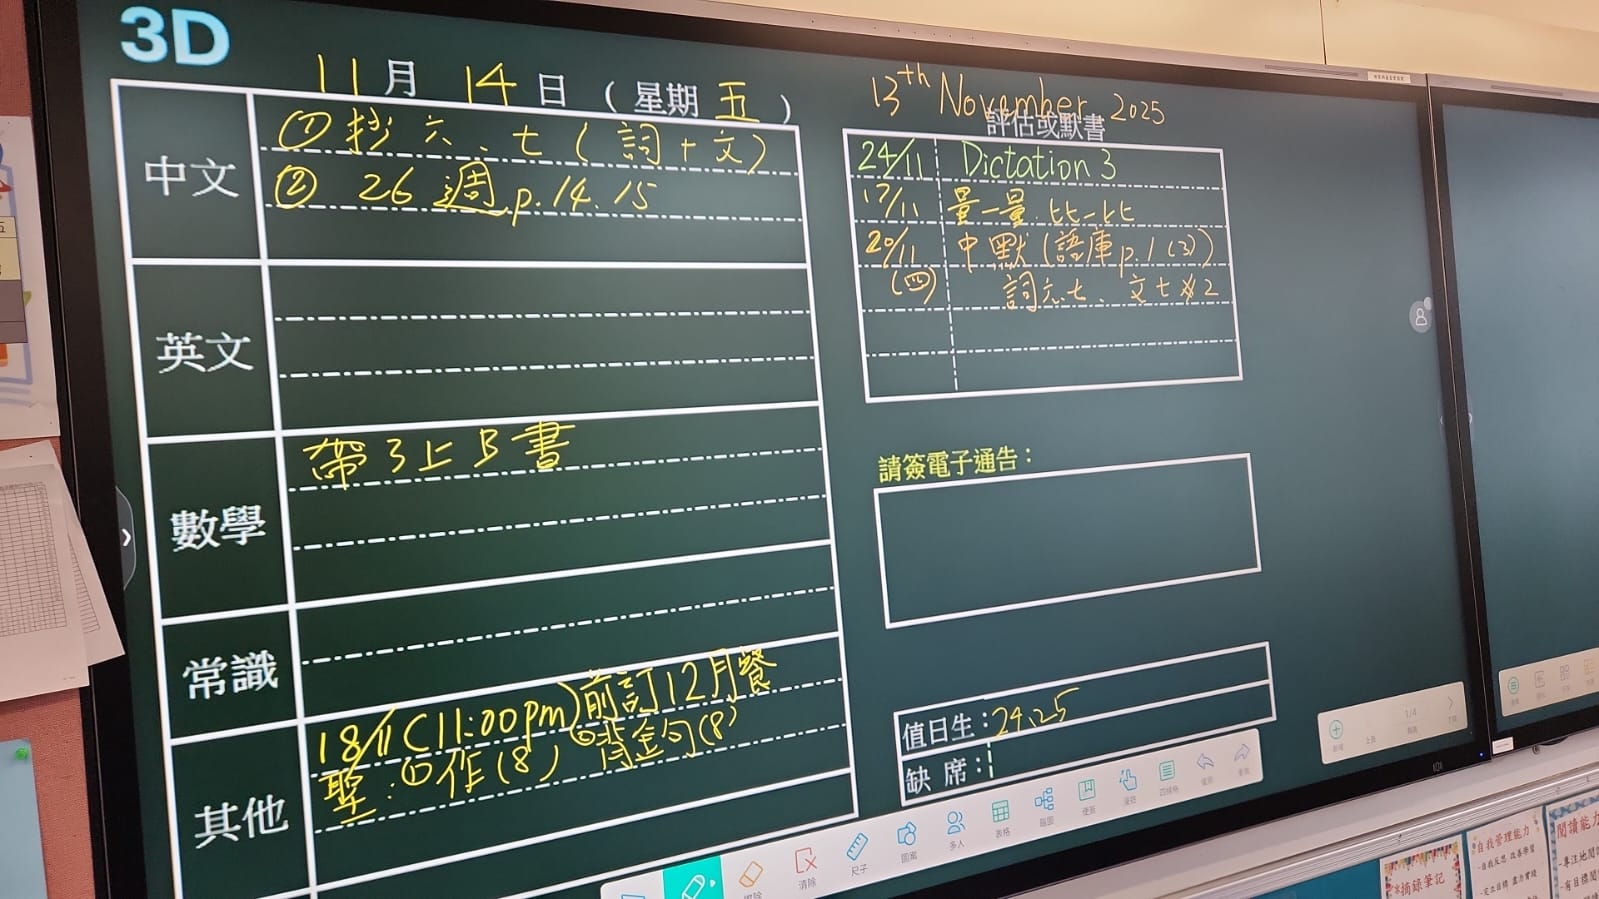 3D
11月14日(星期五)
13th November 2025
中文
① 抄六、七(詞+文)
② 26週 p.14.15
英文
數學
帶3上B書
常識
其他
18/11(11:00pm)前訂12月餐
聖:①作(8) ②背金句(8)
評估或默書
24/11 Dictation 3
17/11 量一量.比一比
20/11 中默(語庫p.1(3))
(四) 詞六.七、文七※2
請簽電子通告:
值日生:24.25
缺席:
清除
尺子
圖案
多人
表格
腦圖
1/4
*摘錄筆記
自我管理能力
-自我反思 改善學習
-定立目標 盡力實踐
閱讀能力